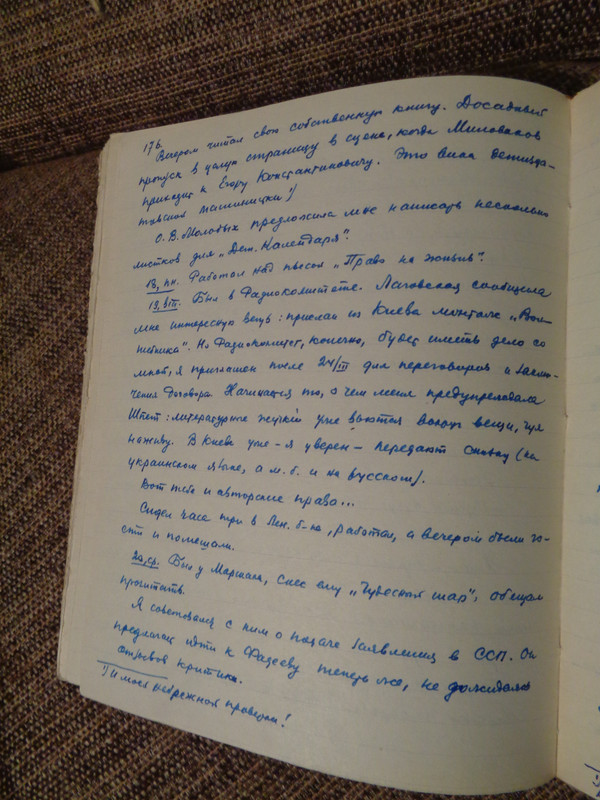 176.
Вечером читал свою собственную книгу. Досадный
пропуск в целую страницу в сцене, когда Миловзоров
приходит к Егору Константиновичу. Это вина детизда-
товской машинистки¹)
О. В. Молодых предложила мне написать несколько
листков для „Дет. Календаря".
18, пн. Работал над пьесой „Право на жизнь".
19, вт. Был в Радиокомитете. Лаговская сообщила
мне интересную вещь: прислан из Киева монтаж „Вол-
шебника". Но Радиокомитет, конечно, будет иметь дело со
мной, я приглашен после 24/III для переговоров и заклю-
чения договора. Начинается то, о чем меня предупреждала
Штейн: литературные жучки уже вьются вокруг вещи, чуя
наживу. В Киеве уже - я уверен - передают сказку (на
украинском языке, а м. б. и на русском).
Вот тебе и авторские права...
Сидел часа три в Лен. б-ке, работал, а вечером были го-
сти и помешали.
20, ср. Был у Маршака, снес ему „Чудесный шар", обещал
прочитать.
Я советовался с ним о подаче заявления в ССП. Он
предлагал идти к Фадееву теперь же, не дожидаясь
отзывов критики.
¹) И моей небрежной проверки!